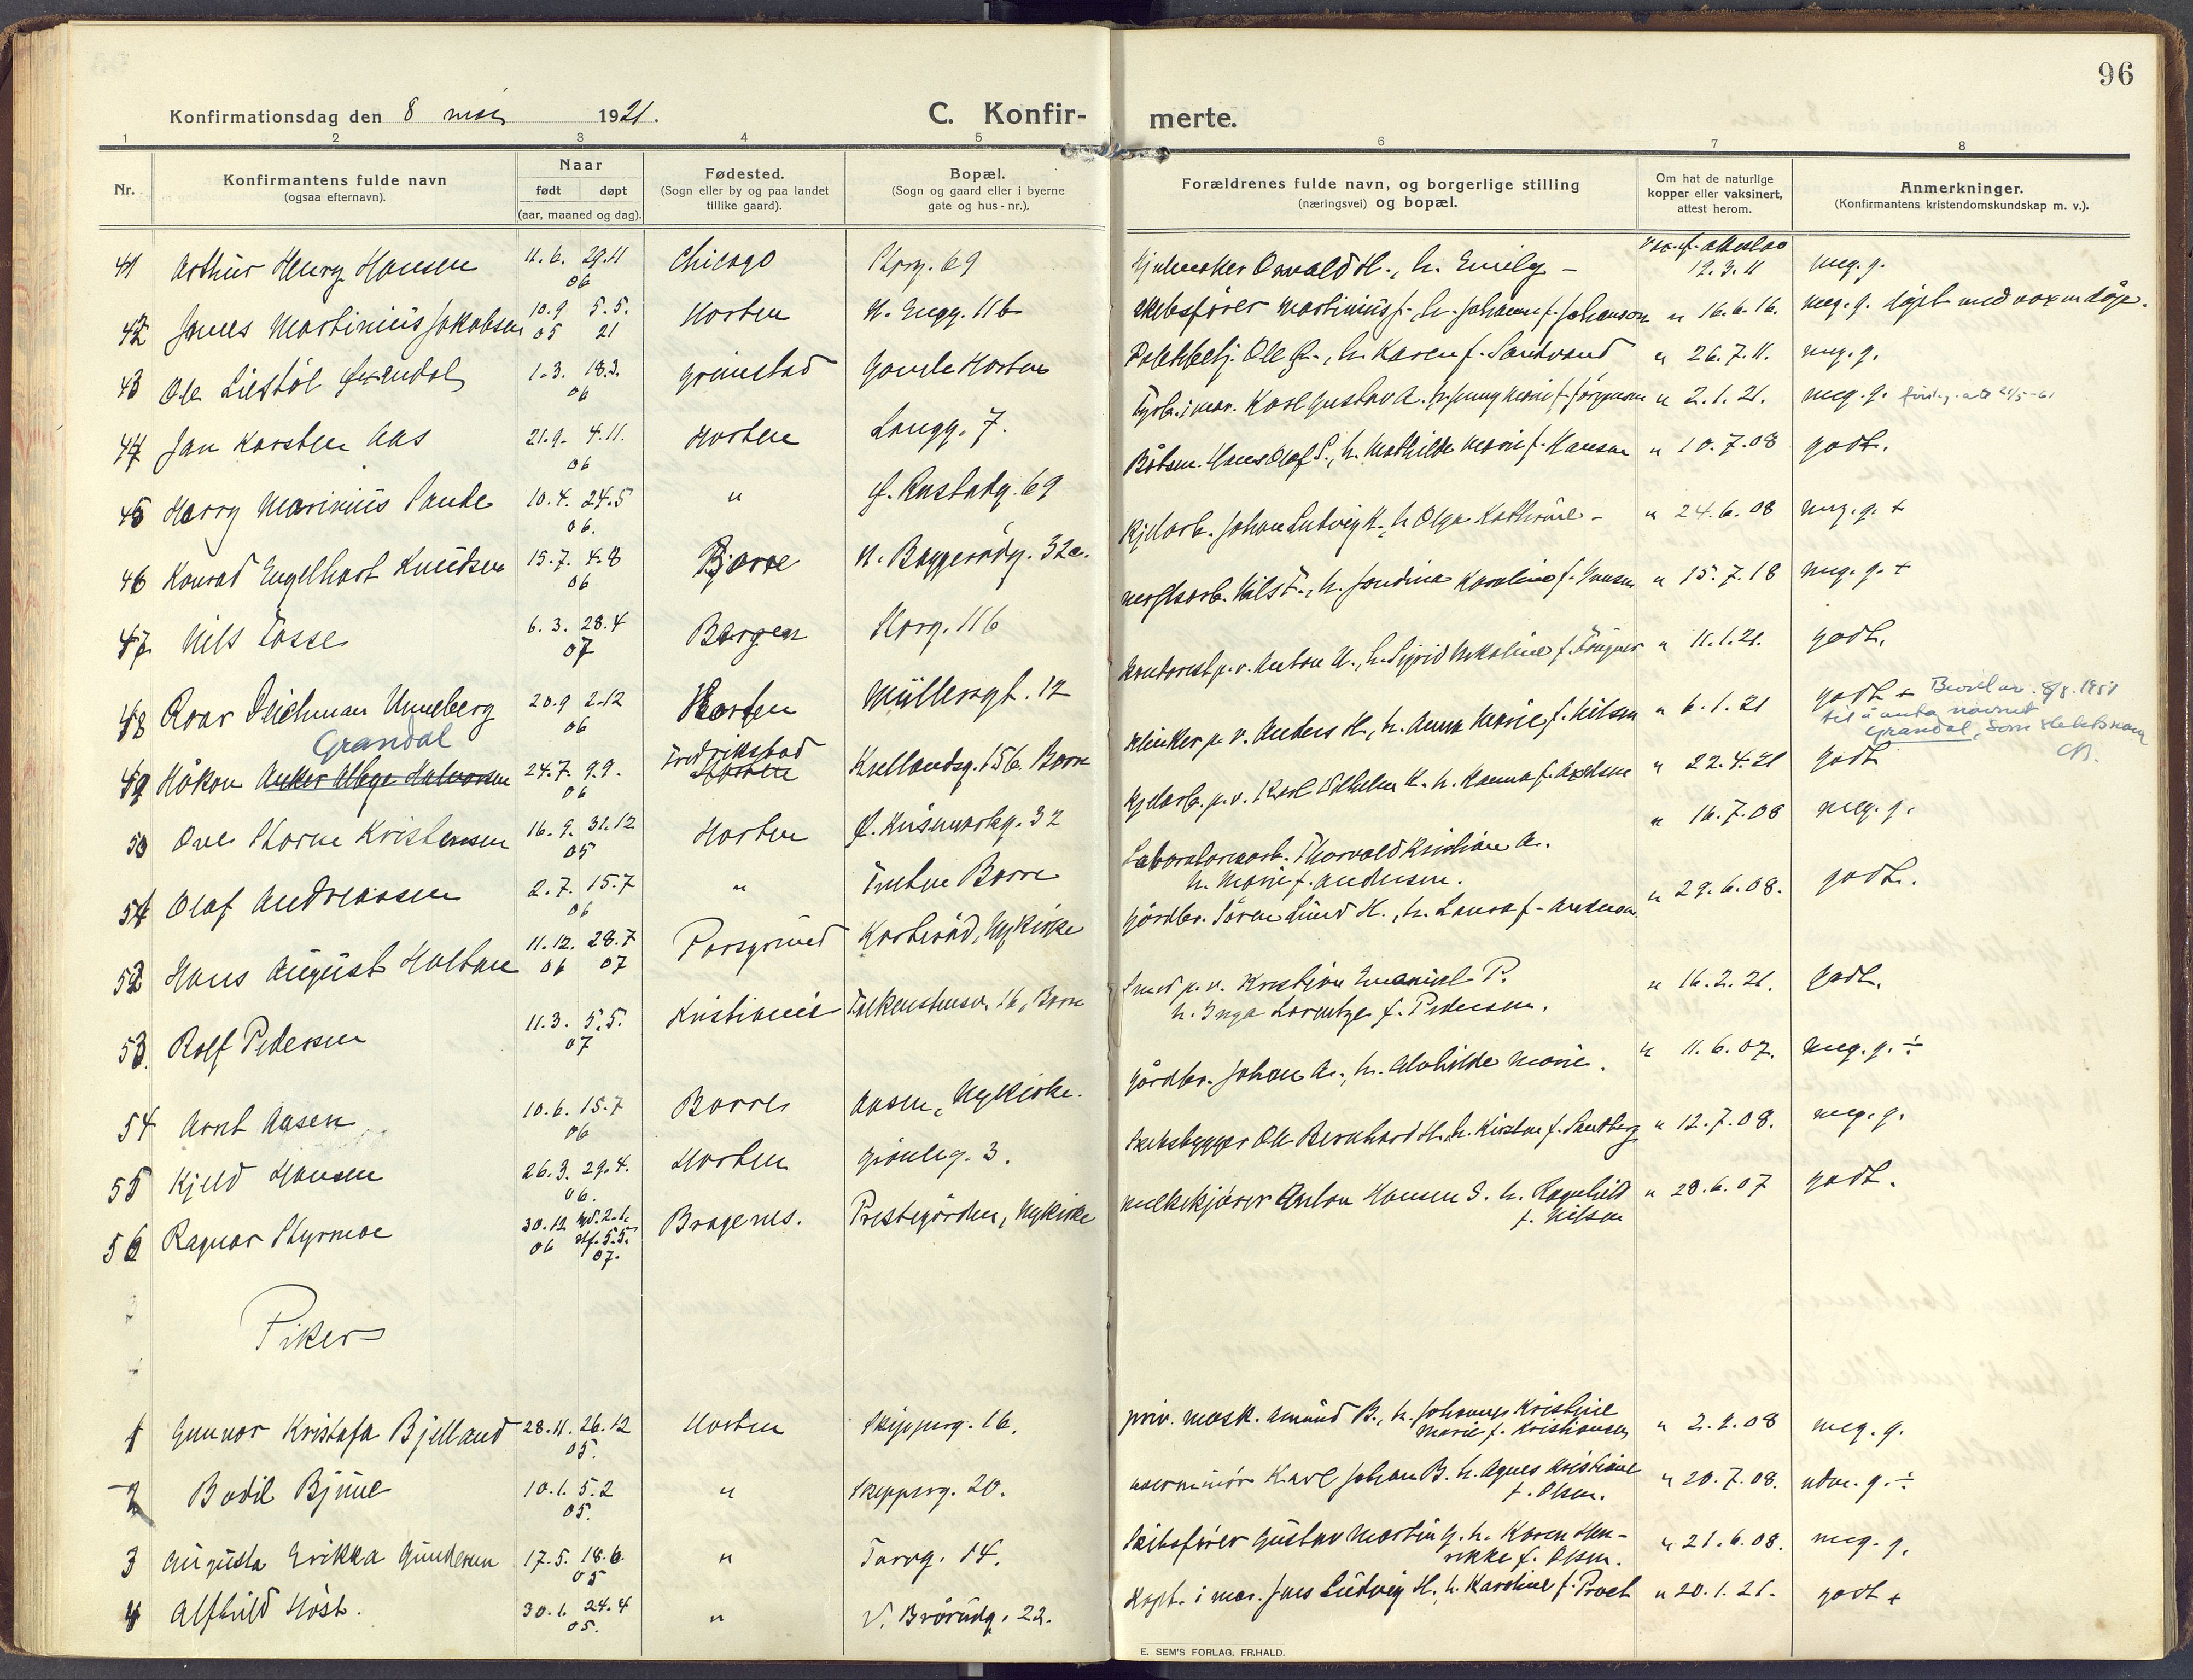 96
Konfirmationsdag den 8 mai 1921.
C. Konfirmerte.
1 2 3 4 5 6 7 8
Nr.
Konfirmantens fulde navn
(ogsaa efternavn).
Naar
født døpt
(aar, maaned og dag).
Fødested.
(Sogn eller by og paa landet
tillike gaard).
Bopæl.
(Sogn og gaard eller i byerne
gate og hus-nr.).
Forældrenes fulde navn, og borgerlige stilling
(næringsvei) og bopæl.
Om hat de naturlige
kopper eller vaksinert,
attest herom.
Anmerkninger.
(Konfirmantens kristendomskundskap m. v.).
41 Arthur Henry Hansen 11.6. 29.11 06 Chicago Storg. 69 Osvald H., h. Emily - vax. f. attest av 19.3.11 meg. g.
42 Jens Martinius Jakobsen 10.9 05 5.5. 21 Horten N. Engg. 11b Skibsfører Martinius J., h. Johanne f. Johanson " 16.6.16. meg. g. døpt med voxendåp.
43 Ole Liestøl Grendal 1.3. 18.3. 06 Grimstad Gamle Horten Ole G., h. Karen f. Sandvand " 26.7.11. meg. g.
44 Jan Karsten Aas 21.9. 4.11. 06 Horten Langg. 7. Karl Gustav A. h. Jenny Marie f. Jörgensen " 2.1.21. meg. g.
45 Harry Marinius Sande 10.4. 24.5 06. " Ø. Rustadg. 69 Båtsm. Hans Olaf S., h. Mathilde Marie f. Hansen " 10.7.08 godt.
46 Konrad Engelhart Knudsen 15.7. 4.8 06 Borre N. Baggerødg. 32a. Kjelarb. Johan Ludvig K., h. Olga Kathrine - " 24.6.08 meg. g. +
47 Nils Tosse 6.3. 28.4 07 Bergen Storg. 116 Nils T., h. Jondina Karoline f. " 15.7.18 meg. g. +
48 Roar Deichman Unneberg 20.9 2.12 06 Horten Müllersgt. 12 Kontorist p. v. Anton U., h. Sigrid Nikoline f. " 11.1.21. godt.
Grandal
49 Håkon Anker Albye Halvorsen 24.7. 9.9. 06 Fredrikstad Horten Kiellandsg. 156. Borre Klinker p. v. Anders H., h. Anna Marie f. Nilsen " 6.1.21 godt + Bevill av 8/8.1951
til å anta navnet
Grandal, som slektsnavn
50 Ove Storm Kristensen 16.9. 31.12 05 Horten 32 Kjelarb. p. v. Karl Vilhelm K. h. Hanna f. Axelsen " 22.4.21 godt
51 Olaf Andreassen 2.7. 15.7 06 " Borre Laboratoriearb. Thorvald Kristian A.
h. Marie f. Andersen. " 16.7.08 meg. g.
52 Hans August Holtan 11.12. 06 28.7 07 Porsgrund Nykirke Gårdbr. Sören Lund H., h. Laura f. Andersen. " 29.6.08. godt.
53. Rolf Pedersen 11.3. 5.5. 07 Kristiania Falkenstensv. 16, Borre Smed p. v. Kristian Emanuel P.
h. Inga Lorentze f. Pedersen. " 16.2.21. godt.
54 Arnt Aasen 10.6. 15.7 06 Borre Aasen, Nykirke. Gårdbr. Johan A., h. Alvhilde Marie. " 11.6.07. meg. g. ÷
55 Kjeld Hansen 26.3. 29.4. 06. Horten Grönlig. 3. Skibsbygger Ole Bernhard H., h. Kirsten f. Sandberg " 12.7.08. meg. g.
56 Ragnar Styrmoe 30.12 06 hd. 2.1. stf. 5.5. 07. Bragernes. Prestegården, Nykirke Melkekjører Anton Hansen S. h. Ragnhild
f. Nilsen " 28.6.07 godt.
Piker
1 Gunvor Kristofa Bjelland 28.11. 26.12 05. Horten Skipperg. 16. priv. mask. Amund B., h. Johanne Kristine
Marie f. Kristiansen " 2.7.08 meg. g.
2 Bodil Bjune 10.1. 5.2 05. " Skipperg. 20. Karl Johan B. h. Agnes Kristiane
f. Olsen. " 20.7.08. udm. g. ÷
3 Augusta Erikka Gundersen 17.5. 18.6. 05 " Torvg. 14. Skibsfører Gustav Martin G. h. Karen Hen-
rikke f. Olsen. " 21.6.08. meg. g.
4 Alfhild Høst. 30.1. 24.4 05. " V. Brårudg. 22. Kapt. i mar. Jens Ludvig H., h. Karoline f. Proet " 20.1.21. godt +
E. SEM'S FORLAG, FR.HALD.